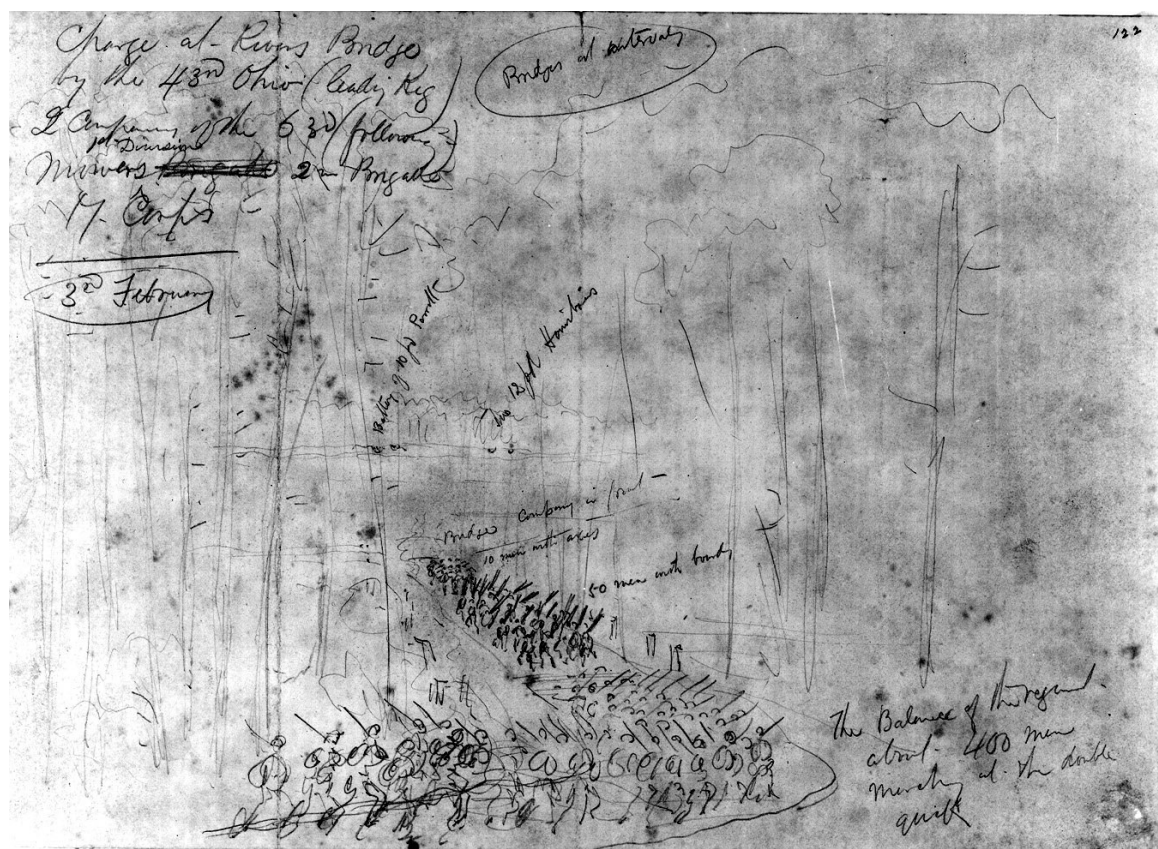 Charge at Rivers Bridge
by the 43rd Ohio (leading Reg)
2 Companys of the 63rd (following)
1st Division
Mowers Brigade 2nd Brigade
17 Corps
3rd February
Bridges at intervals
122
Battery of 10 pd Parrotts
Two 12 pd Howitzers
Bridge Company in front
10 men with axes
50 men with boards
The Balance of the regmt.
about 400 men
march at the double
quick